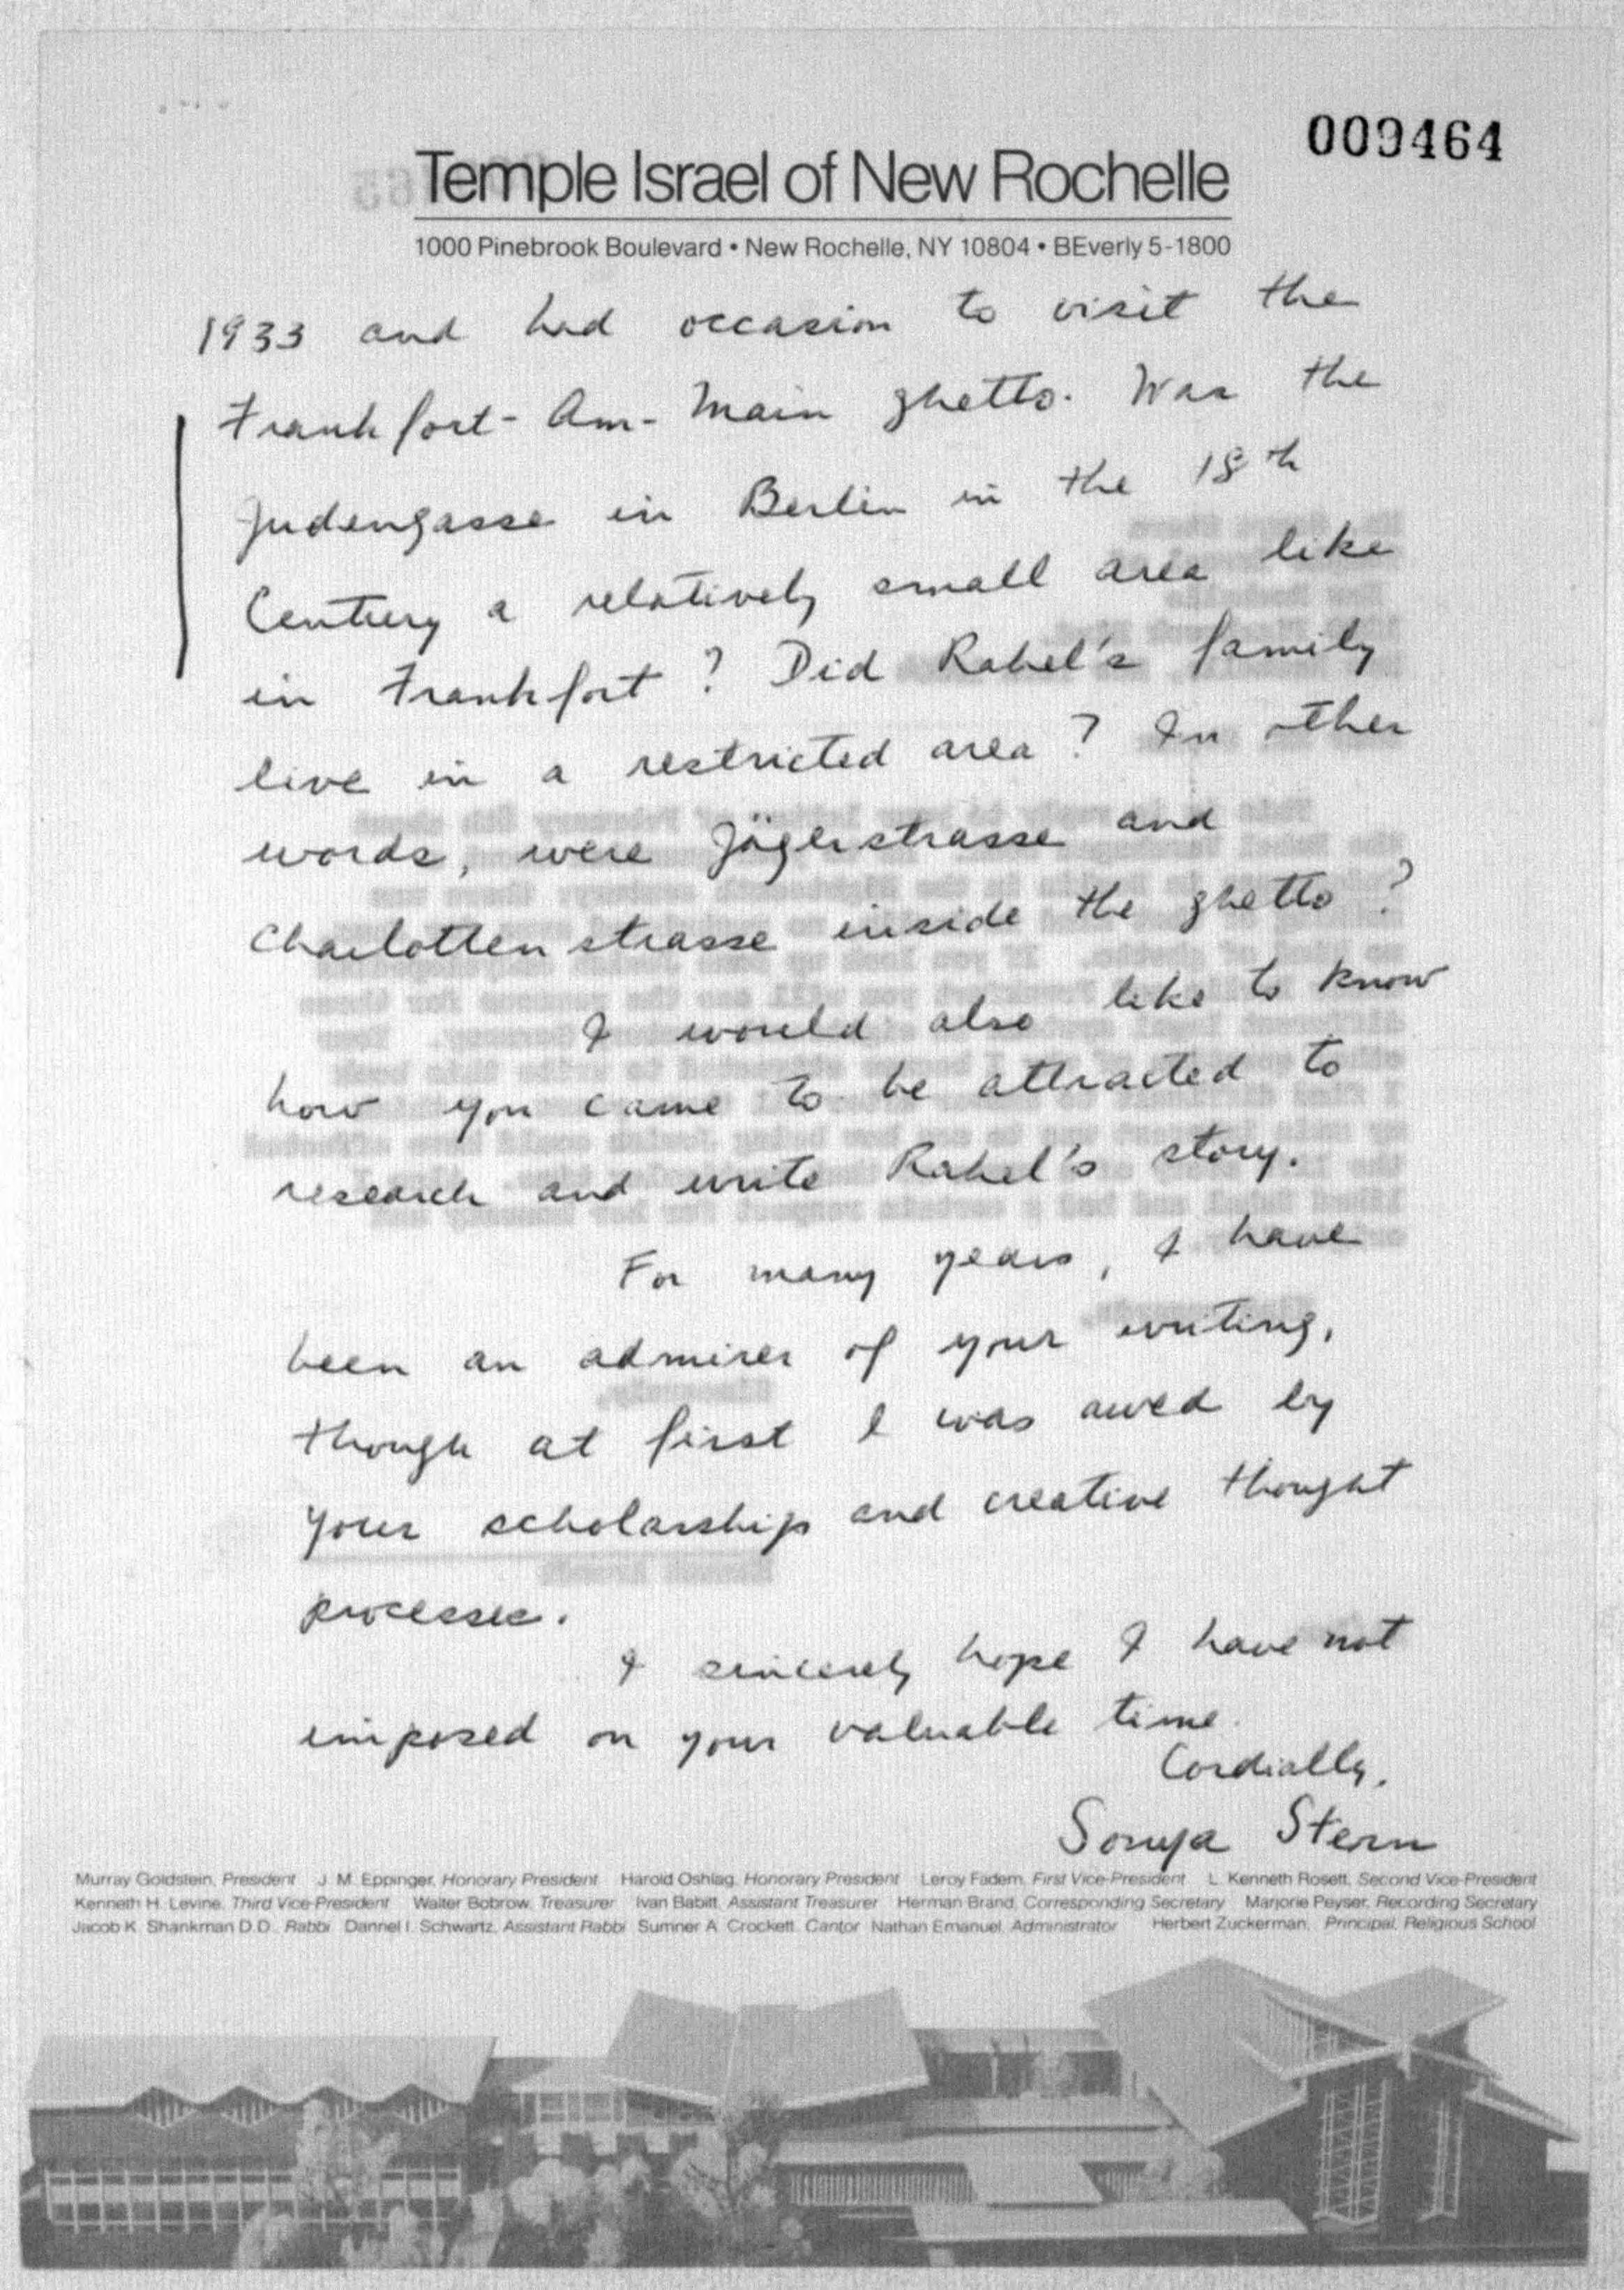 009464
Temple Israel of New Rochelle
1000 Pinebrook Boulevard • New Rochelle, NY 10804 • BEverly 5-1800
1933 and had occasion to visit the
Frankfort-Am-Main ghetto. Was the
Judengasse in Berlin in the 18th
Century a relatively small area like
in Frankfort? Did Rahel's family
live in a restricted area? In other
words, were Jägerstrasse and
Charlottenstrasse inside the ghetto?
I would also like to know
how you came to be attracted to
research and write Rahel's story.
For many years, I have
been an admirer of your writing,
though at first I was awed by
your scholarship and creative thought
processes.
I sincerely hope I have not
imposed on your valuable time.
Cordially,
Sonya Stern
Murray Goldstein, President J. M. Eppinger, Honorary President Harold Oshlag, Honorary President Leroy Fadem, First Vice-President L. Kenneth Rosett, Second Vice-President
Kenneth H. Levine, Third Vice-President Walter Bobrow, Treasurer Ivan Babitt, Assistant Treasurer Herman Brand, Corresponding Secretary Marjorie Peyser, Recording Secretary
Jacob K. Shankman D.D., Rabbi Dannel I. Schwartz, Assistant Rabbi Sumner A. Crockett, Cantor Nathan Emanuel, Administrator Herbert Zuckerman, Principal, Religious School